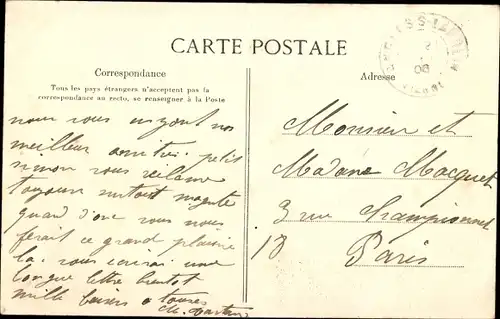 CARTE POSTALE
Correspondance
Tous les pays étrangers n'acceptent pas la
correspondance au recto, se renseigner à la Poste
nous vous envoyons nos
meilleur petit
simon vous reclame
toujours surtout
quand donc vous nous
ferait ce grand plaisir
la. vous une
longue lettre bientot
mille baisers a toutes
Adresse
06
Monsieur et
Madame Macquet
3 rue Championnet
18 Paris